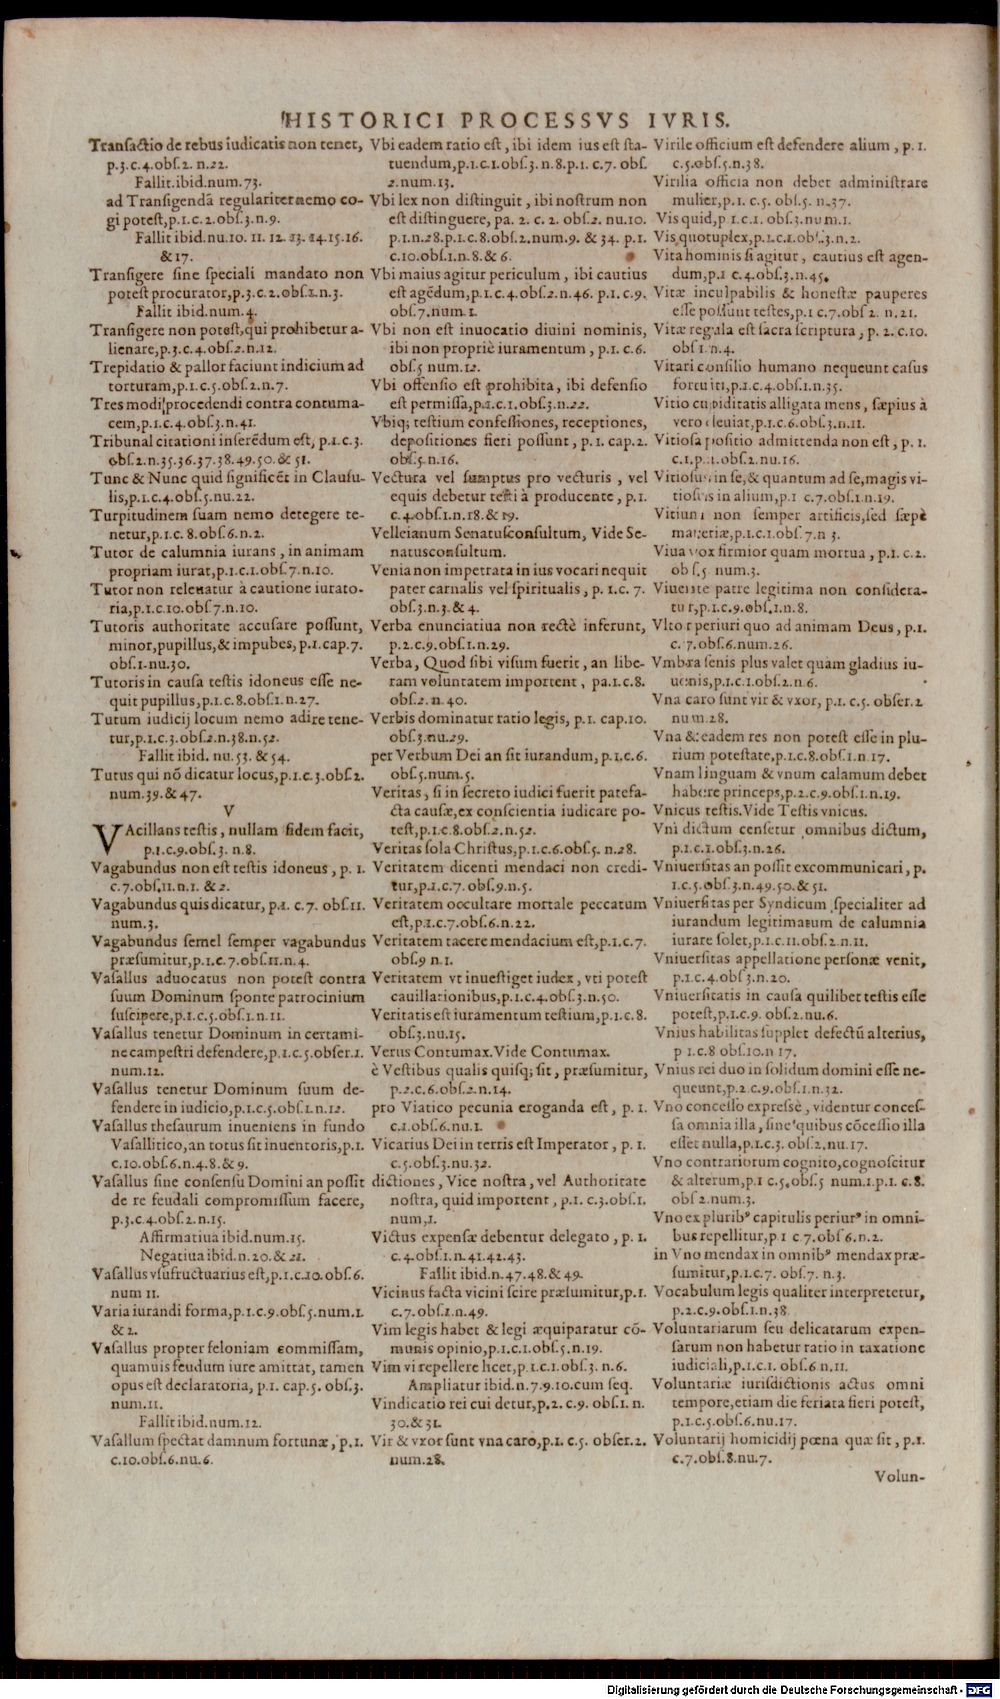 HISTORICI PROCESSVS IVRIS.
Transactio de rebus iudicatis non tenet,
p.3.c.4.obs.2. n.22.
Fallit.ibid.num.73.
ad Transigendā regulariter nemo co-
gi potest,p.1.c.2.obs.3.n.9.
Fallit ibid.nu.10. 11. 12. 13. 14.15.16.
& 17.
Transigere sine speciali mandato non
potest procurator,p.3.c.2.obs.1.n.3.
Fallit ibid.num.4.
Transigere non potest,qui prohibetur a-
lienare,p.3.c.4.obs.2.n.12.
Trepidatio & pallor faciunt indicium ad
torturam,p.1.c.5.obs.2.n.7.
Tres modi procedendi contra contuma-
cem,p.1.c.4.obs.3.n.41.
Tribunal citationi inserēdum est, p.1.c.3.
obs.2.n.35.36.37.38.49.50.& 51.
Tunc & Nunc quid significēt in Clausu-
lis,p.1.c.4.obs.5.nu.22.
Turpitudinem suam nemo detegere te-
netur,p.1.c. 8.obs.6.n.2.
Tutor de calumnia iurans, in animam
propriam iurat,p.1.c.1.obs.7.n.10.
Tutor non releuatur à cautione iurato-
ria,p.1.c.10.obs.7.n.10.
Tutoris authoritate accusare possunt,
minor,pupillus,& impubes,p.1.cap.7.
obs.1.nu.30.
Tutoris in causa testis idoneus esse ne-
quit pupillus,p.1.c.8.obs.1.n.27.
Tutum iudicij locum nemo adire tene-
tur,p.1.c.3.obs.2.n.38.n.52.
Fallit ibid. nu.53. & 54.
Tutus qui nō dicatur locus,p.1.c.3.obs.2.
num.39.& 47.
V
VAcillans testis, nullam fidem facit,
p.1.c.9.obs.3. n.8.
Vagabundus non est testis idoneus, p. 1.
c.7.obs.11.n.1. & 2.
Vagabundus quis dicatur, p.1. c.7. obs.11.
num.3.
Vagabundus semel semper vagabundus
præsumitur,p.1.c.7.obs.11.n.4.
Vasallus aduocatus non potest contra
suum Dominum sponte patrocinium
suscipere,p.1.c.5.obs.1.n.11.
Vasallus tenetur Dominum in certami-
ne campestri defendere,p.1.c.5.obser.1.
num.12.
Vasallus tenetur Dominum suum de-
fendere in iudicio,p.1.c.5.obs.1.n.12.
Vasallus thesaurum inueniens in fundo
Vasallitico,an totus sit inuentoris,p.1.
c.10.obs.6.n.4.8.& 9.
Vasallus sine consensu Domini an possit
de re feudali compromissum facere,
p.3.c.4.obs.2.n.15.
Affirmatiua ibid.num.15.
Negatiua ibid.n.20.& 21.
Vasallus vsufructuarius est,p.1.c.10.obs.6.
num 11.
Varia iurandi forma,p.1.c.9.obs.5.num.1.
& 2.
Vasallus propter feloniam commissam,
quamuis feudum iure amittat, tamen
opus est declaratoria, p.1. cap.5. obs.3.
num.11.
Fallit ibid.num.12.
Vasallum spectat damnum fortunæ, p.1.
c.10.obs.6.nu.6.
Vbi eadem ratio est, ibi idem ius est sta-
tuendum,p.1.c.1.obs.3.n.8.p.1. c.7. obs.
2.num.13.
Vbi lex non distinguit, ibi nostrum non
est distinguere, pa. 2. c. 2. obs.2. nu.10.
p.1.n.28.p.1.c.8.obs.2.num.9. & 34. p.1.
c.10.obs.1.n.8.& 6.
Vbi maius agitur periculum, ibi cautius
est agēdum,p.1.c.4.obs.2.n.46. p.1.c.9.
obs.7.num.1.
Vbi non est inuocatio diuini nominis,
ibi non propriè iuramentum, p.1. c.6.
obs.5 num.12.
Vbi offensio est prohibita, ibi defensio
est permissa,p.1.c.1.obs.3.n.22.
Vbiq; testium confessiones, receptiones,
depositiones fieri possunt, p.1. cap.2.
obs.5.n.16.
Vectura vel sumptus pro vecturis, vel
equis debetur testi à producente, p.1.
c.4.obs.1.n.18.& 19.
Velleianum Senatusconsultum, Vide Se-
natusconsultum.
Venia non impetrata in ius vocari nequit
pater carnalis vel spiritualis, p. 1.c. 7.
obs.3.n.3.& 4.
Verba enunciatiua non rectè inferunt,
p.2.c.9.obs.1.n.29.
Verba, Quod sibi visum fuerit, an libe-
ram voluntatem importent, pa.1.c.8.
obs.2.n.40.
Verbis dominatur ratio legis, p.1. cap.10.
obs.3.nu.29.
per Verbum Dei an sit iurandum, p.1.c.6.
obs.5.num.5.
Veritas, si in secreto iudici fuerit patefa-
cta causæ,ex conscientia iudicare po-
test,p.1.c.8.obs.2.n.52.
Veritas sola Christus,p.1.c.6.obs.5. n.28.
Veritatem dicenti mendaci non credi-
tur,p.1.c.7. obs.9.n.5.
Veritatem occultare mortale peccatum
est,p.1.c.7.obs.6.n.22.
Veritatem tacere mendacium est,p.1.c.7.
obs.9 n.1.
Veritatem vt inuestiget iudex, vti potest
cauillationibus,p.1.c.4.obs.3.n.50.
Veritatis est iuramentum testium,p.1.c.8.
obs.3.nu.15.
Verus Contumax.Vide Contumax.
è Vestibus qualis quisq; sit, præsumitur,
p.2.c.6.obs.2.n.14.
pro Viatico pecunia eroganda est, p. 1.
c.1.obs.6.nu.1.
Vicarius Dei in terris est Imperator, p. 1.
c.5.obs.3.nu.32.
dictiones, Vice nostra, vel Authoritate
nostra, quid importent, p.1. c.3.obs.1.
num,1.
Victus expensæ debentur delegato, p. 1.
c.4.obs.1.n.41.42.43.
Fallit ibid.n.47.48.& 49.
Vicinus facta vicini scire præsumitur,p.1.
c.7.obs.1.n.49.
Vim legis habet & legi æquiparatur cō-
munis opinio,p.1.c.1.obs.5.n.19.
Vim vi repellere licet,p.1.c.1.obs.3. n.6.
Ampliatur ibid.n.7.9.10.cum seq.
Vindicatio rei cui detur,p.2. c.9. obs.1. n.
30.& 31.
Vir & vxor sunt vna caro,p.1. c.5. obser.2.
num.28.
Virile officium est defendere alium, p. 1.
c.5.obs.5.n.38.
Virilia officia non debet administrare
mulier,p.1. c.5. obs.5. n.37.
Vis quid,p 1.c.1. obs.3.num.1.
Vis quotuplex,p.1.c.1.obs.3.n.2.
Vita hominis si agitur, cautius est agen-
dum,p.1 c.4.obs.3.n.45.
Vitæ inculpabilis & honestæ pauperes
esse possunt testes,p.1 c.7.obs 2. n.21.
Vitæ regula est sacra scriptura, p. 2. c.10.
obs 1.n.4.
Vitari consilio humano nequeunt casus
fortuiti,p.1.c.4.obs.1.n.35.
Vitio cupiditatis alligata mens, sæpius à
vero deuiat,p.1.c.6.obs.3.n.11.
Vitiosa positio admittenda non est, p. 1.
c.1.p.1.obs.2.nu.16.
Vitiosus in se,& quantum ad se,magis vi-
tiosus in alium,p.1 c.7.obs.1.n.19.
Vitium non semper artificis,sed sæpè
materiæ,p.1.c.1.obs.7.n 3.
Viua vox firmior quam mortua, p.1. c.2.
obs.5 num.3.
Viuente patre legitima non considera-
tur,p.1.c.9.obs.1.n.8.
Vltor periuri quo ad animam Deus, p.1.
c.7.obs.6.num.26.
Vmbra senis plus valet quam gladius iu-
uenis,p.1.c.1.obs.2.n.6.
Vna caro sunt vir & vxor, p.1. c.5. obser.2
num.28.
Vna & eadem res non potest esse in plu-
rium potestate,p.1.c.8.obs.1.n.17.
Vnam linguam & vnum calamum debet
habere princeps,p.2.c.9.obs.1.n.19.
Vnicus testis.Vide Testis vnicus.
Vni dictum censetur omnibus dictum,
p.1.c.1.obs.3.n.26.
Vniuersitas an possit excommunicari, p.
1.c.5.obs.3.n.49.50.& 51.
Vniuersitas per Syndicum specialiter ad
iurandum legitimatum de calumnia
iurare solet,p.1.c.11.obs.2.n.11.
Vniuersitas appellatione personæ venit,
p.1.c.4.obs 3.n.20.
Vniuersitatis in causa quilibet testis esse
potest,p.1.c.9. obs.2.nu.6.
Vnius habilitas supplet defectū alterius,
p 1.c.8 obs.10.n 17.
Vnius rei duo in solidum domini esse ne-
queunt,p.2.c.9.obs.1.n.32.
Vno concesso expressè, videntur conces-
sa omnia illa, sine quibus cōcessio illa
esset nulla,p.1.c.3. obs.2.nu.17.
Vno contrariorum cognito,cognoscitur
& alterum,p.1 c.5.obs.5 num.1.p.1. c.8.
obs 2.num.3.
Vno ex pluribꝰ capitulis periurꝰ in omni-
bus repellitur,p 1 c.7.obs 6.n.2.
in Vno mendax in omnibꝰ mendax præ-
sumitur,p.1.c.7. obs.7. n.3.
Vocabulum legis qualiter interpretetur,
p.2.c.9.obs.1.n.38
Voluntariarum seu delicatarum expen-
sarum non habetur ratio in taxatione
iudiciali,p.1.c.1. obs.6 n.11.
Voluntariæ iurisdictionis actus omni
tempore,etiam die feriata fieri potest,
p.1.c.5.obs.6.nu.17.
Voluntarij homicidij pœna quæ sit, p.1.
c.7.obs.8.nu.7.
Volun-
Digitalisierung gefördert durch die Deutsche Forschungsgemeinschaft - DFG